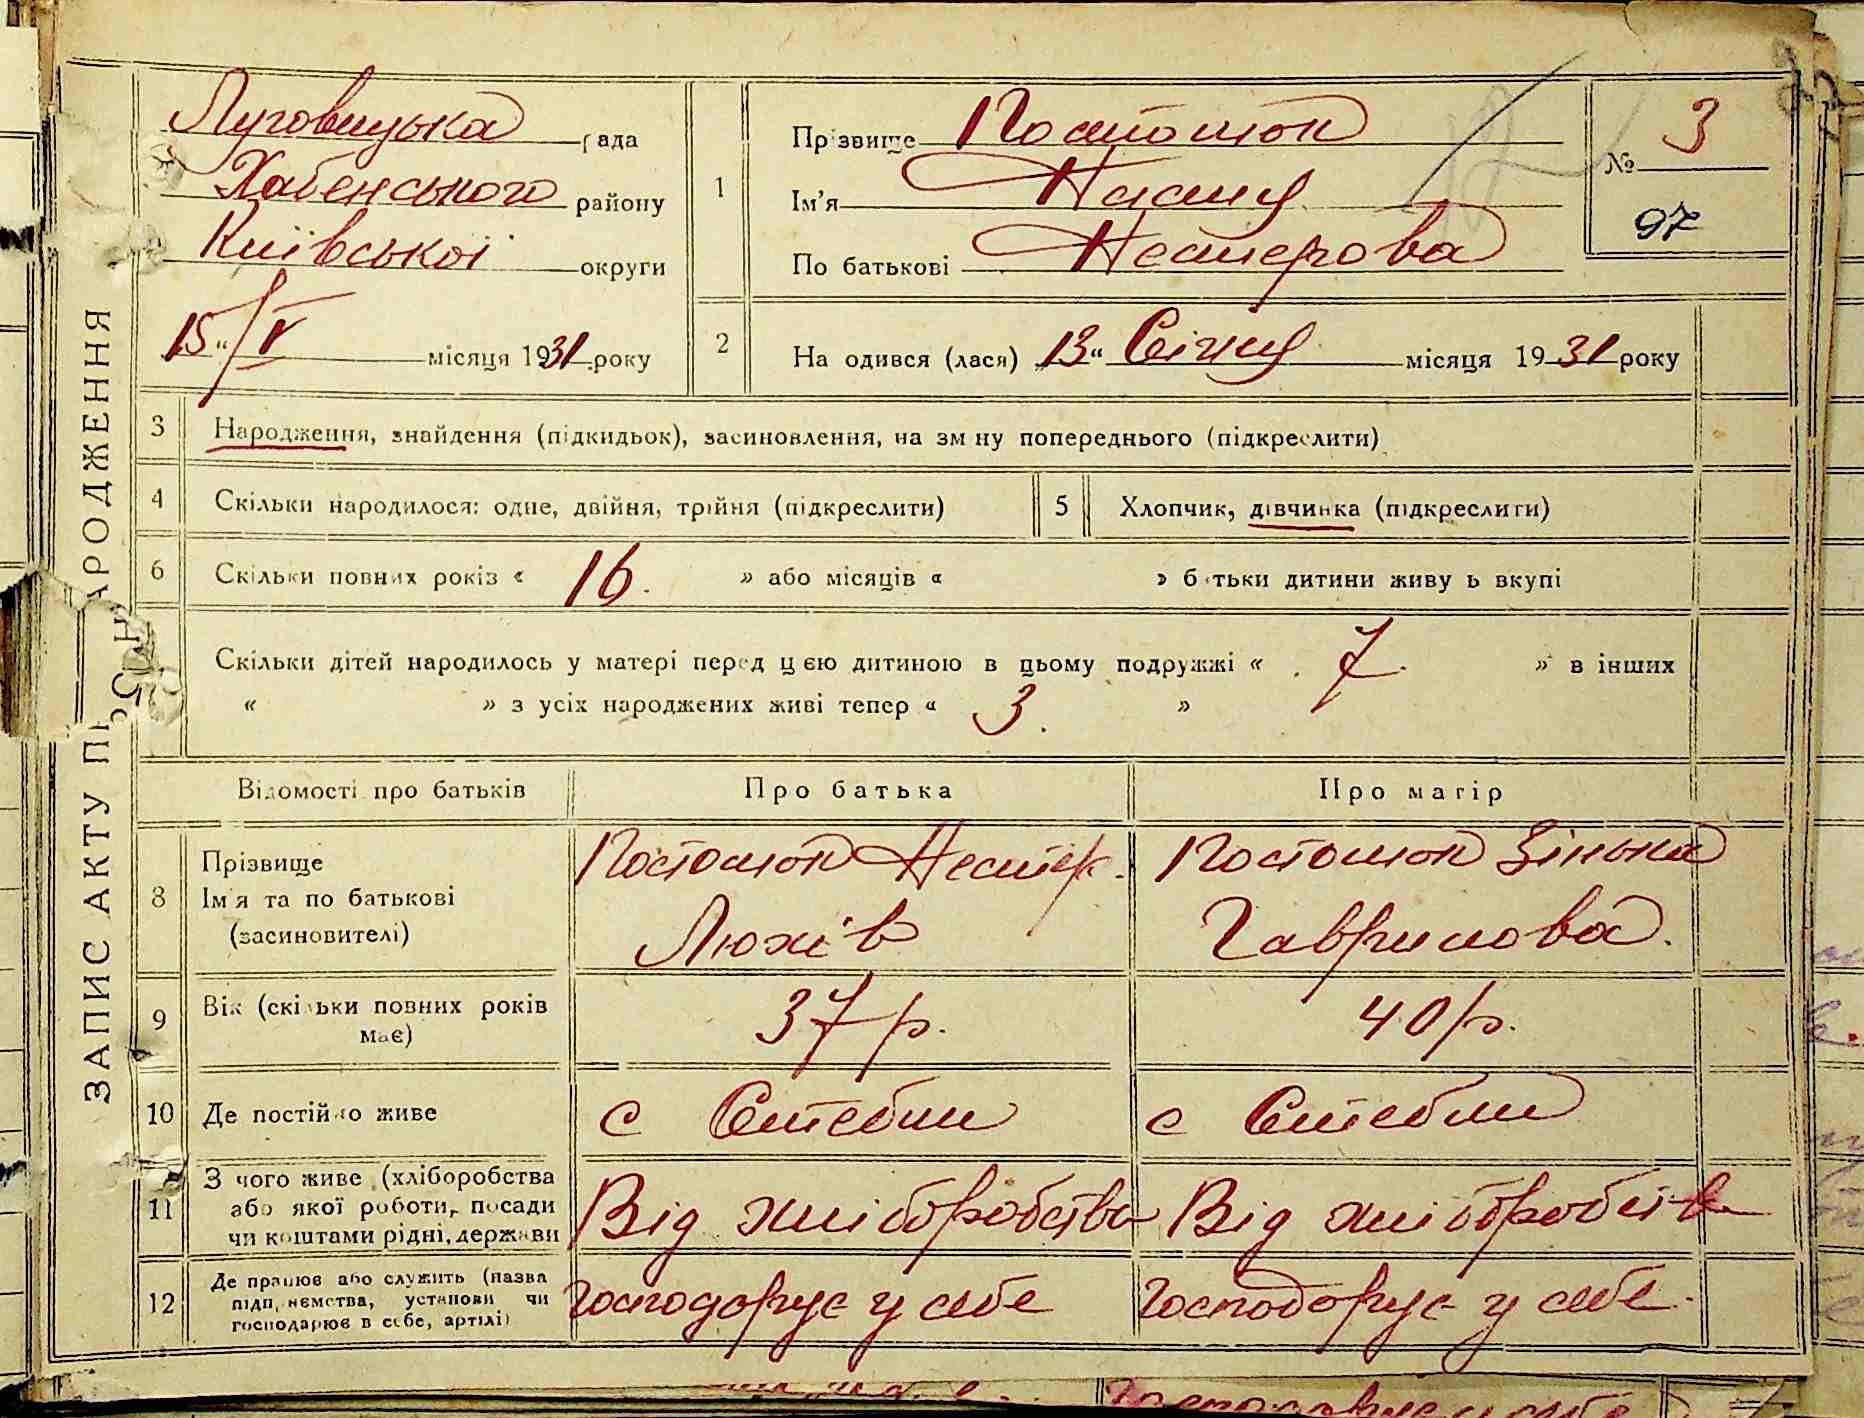 ЗАПИС АКТУ ПРО НАРОДЖЕННЯ
Луговицька рада
Хабенського району
Київської округи
15 "/V місяця 1931 року
1
Прізвище Постотюк
Ім'я
По батькові Нестерова
№ 3
97
2
Народився (лася) „13" Січня місяця 1931 року
3
Народження, знайдення (підкидьок), засиновлення, на зміну попереднього (підкреслити)
4
Скільки народилося: одне, двійня, трійня (підкреслити)
5
Хлопчик, дівчинка (підкреслити)
6
Скільки повних років « 16. » або місяців « » батьки дитини живуть вкупі
Скільки дітей народилось у матері перед цією дитиною в цьому подружжі « 7. » в інших
« » з усіх народжених живі тепер « 3. »
Відомості про батьків
Про батька
Про матір
8
Прізвище
Ім'я та по батькові
(засиновителі)
Нестер
Гаврилова.
Зінька
9
Вік (скільки повних років
має)
37 р.
40 р.
10
Де постійно живе
с Стебли
с Стебли
11
З чого живе (хліборобства
або якої роботи, посади
чи коштами рідні, держави
Від хліборобства
Від хліборобства
12
Де працює або служить (назва
підприємства, установи чи
господарює в себе, артілі)
Господарує у себе
Господарує у себе.